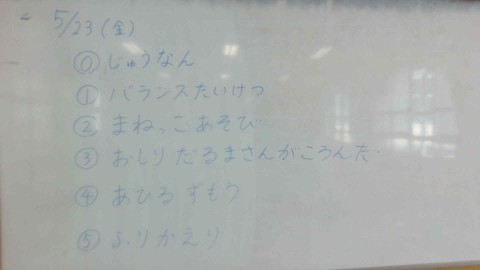 5/23(金)
⓪ じゅうなん
① バランスたいけつ
② まねっこあそび…
③ おしりだるまさんがころんだ…
④ あひるずもう
⑤ ふりかえり